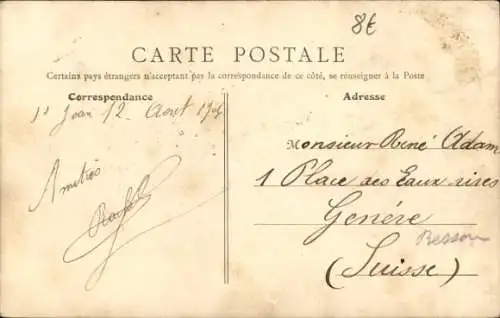 8€
CARTE POSTALE
Certains pays étrangers n'acceptant pas la correspondance de ce côté, se renseigner à la Poste
Correspondance
Adresse
St Jean 12 Aout
Amitiés
Monsieur René Adam
1 Place des Eaux vives
Genève
Besson
(Suisse)